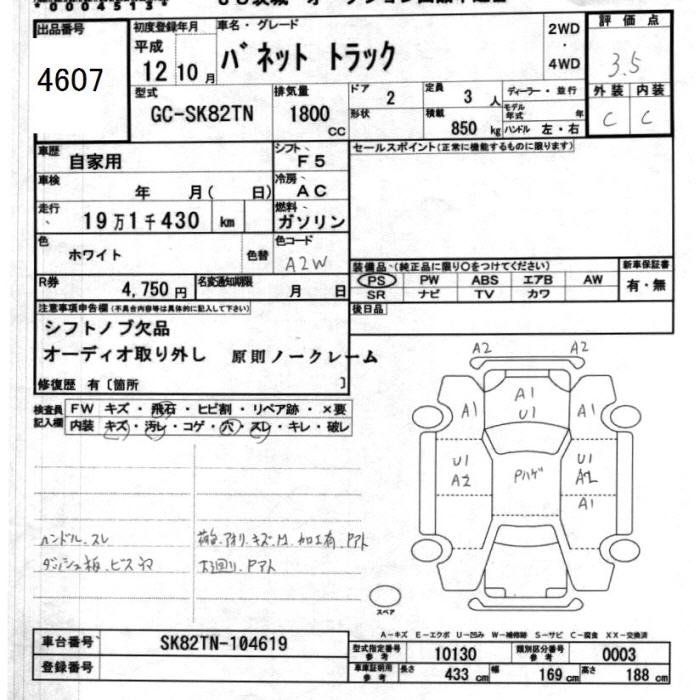 *0004513*
出品番号
4607
初度登録年月
平成
12 10 月
車名・グレード
バネット トラック
2WD
・
4WD
評価点
3.5
外装 内装
C C
型式
GC-SK82TN
排気量
1800
cc
ドア 2
形状
定員 3 人
積載 850 kg
ディーラー・並行
モデル年式 年
ハンドル 左・右
車歴 自家用
シフト F5
車検 年 月( 日)
冷房 AC
走行 19万1千430 km
燃料 ガソリン
色 ホワイト 色替
色コード A2W
R券 4,750円
名変通知期限 月 日
セールスポイント(正常に機能するものに限ります)
装備品、(純正品に限り○をつけてください)
PS PW ABS エアB AW
SR ナビ TV カワ
新車保証書
有・無
後日品
注意事項申告欄(不具合内容等は具体的に記入して下さい)
シフトノブ欠品
オーディオ取り外し 原則ノークレーム
修復歴 有〔箇所 〕
検査員記入欄
FW キズ・飛石・ヒビ割・リペア跡・×要
内装 キズ・汚レ・コゲ・穴・スレ・キレ・破レ
ハンドル、スレ
荷台、アオリ、キズ、M、加工有、Pアト
下回り、Pアト
A2 A2
A1
U1
A1 A1
U1
A2
Pハゲ
U1
A2
A1
スペア
A-キズ E-エクボ U-凹み W-補修跡 S-サビ C-腐食 XX-交換済
車台番号 SK82TN-104619
登録番号
型式指定番号 参考 10130
類別区分番号 参考 0003
車庫証明用 参考 長さ 433 cm 幅 169 cm 高さ 188 cm